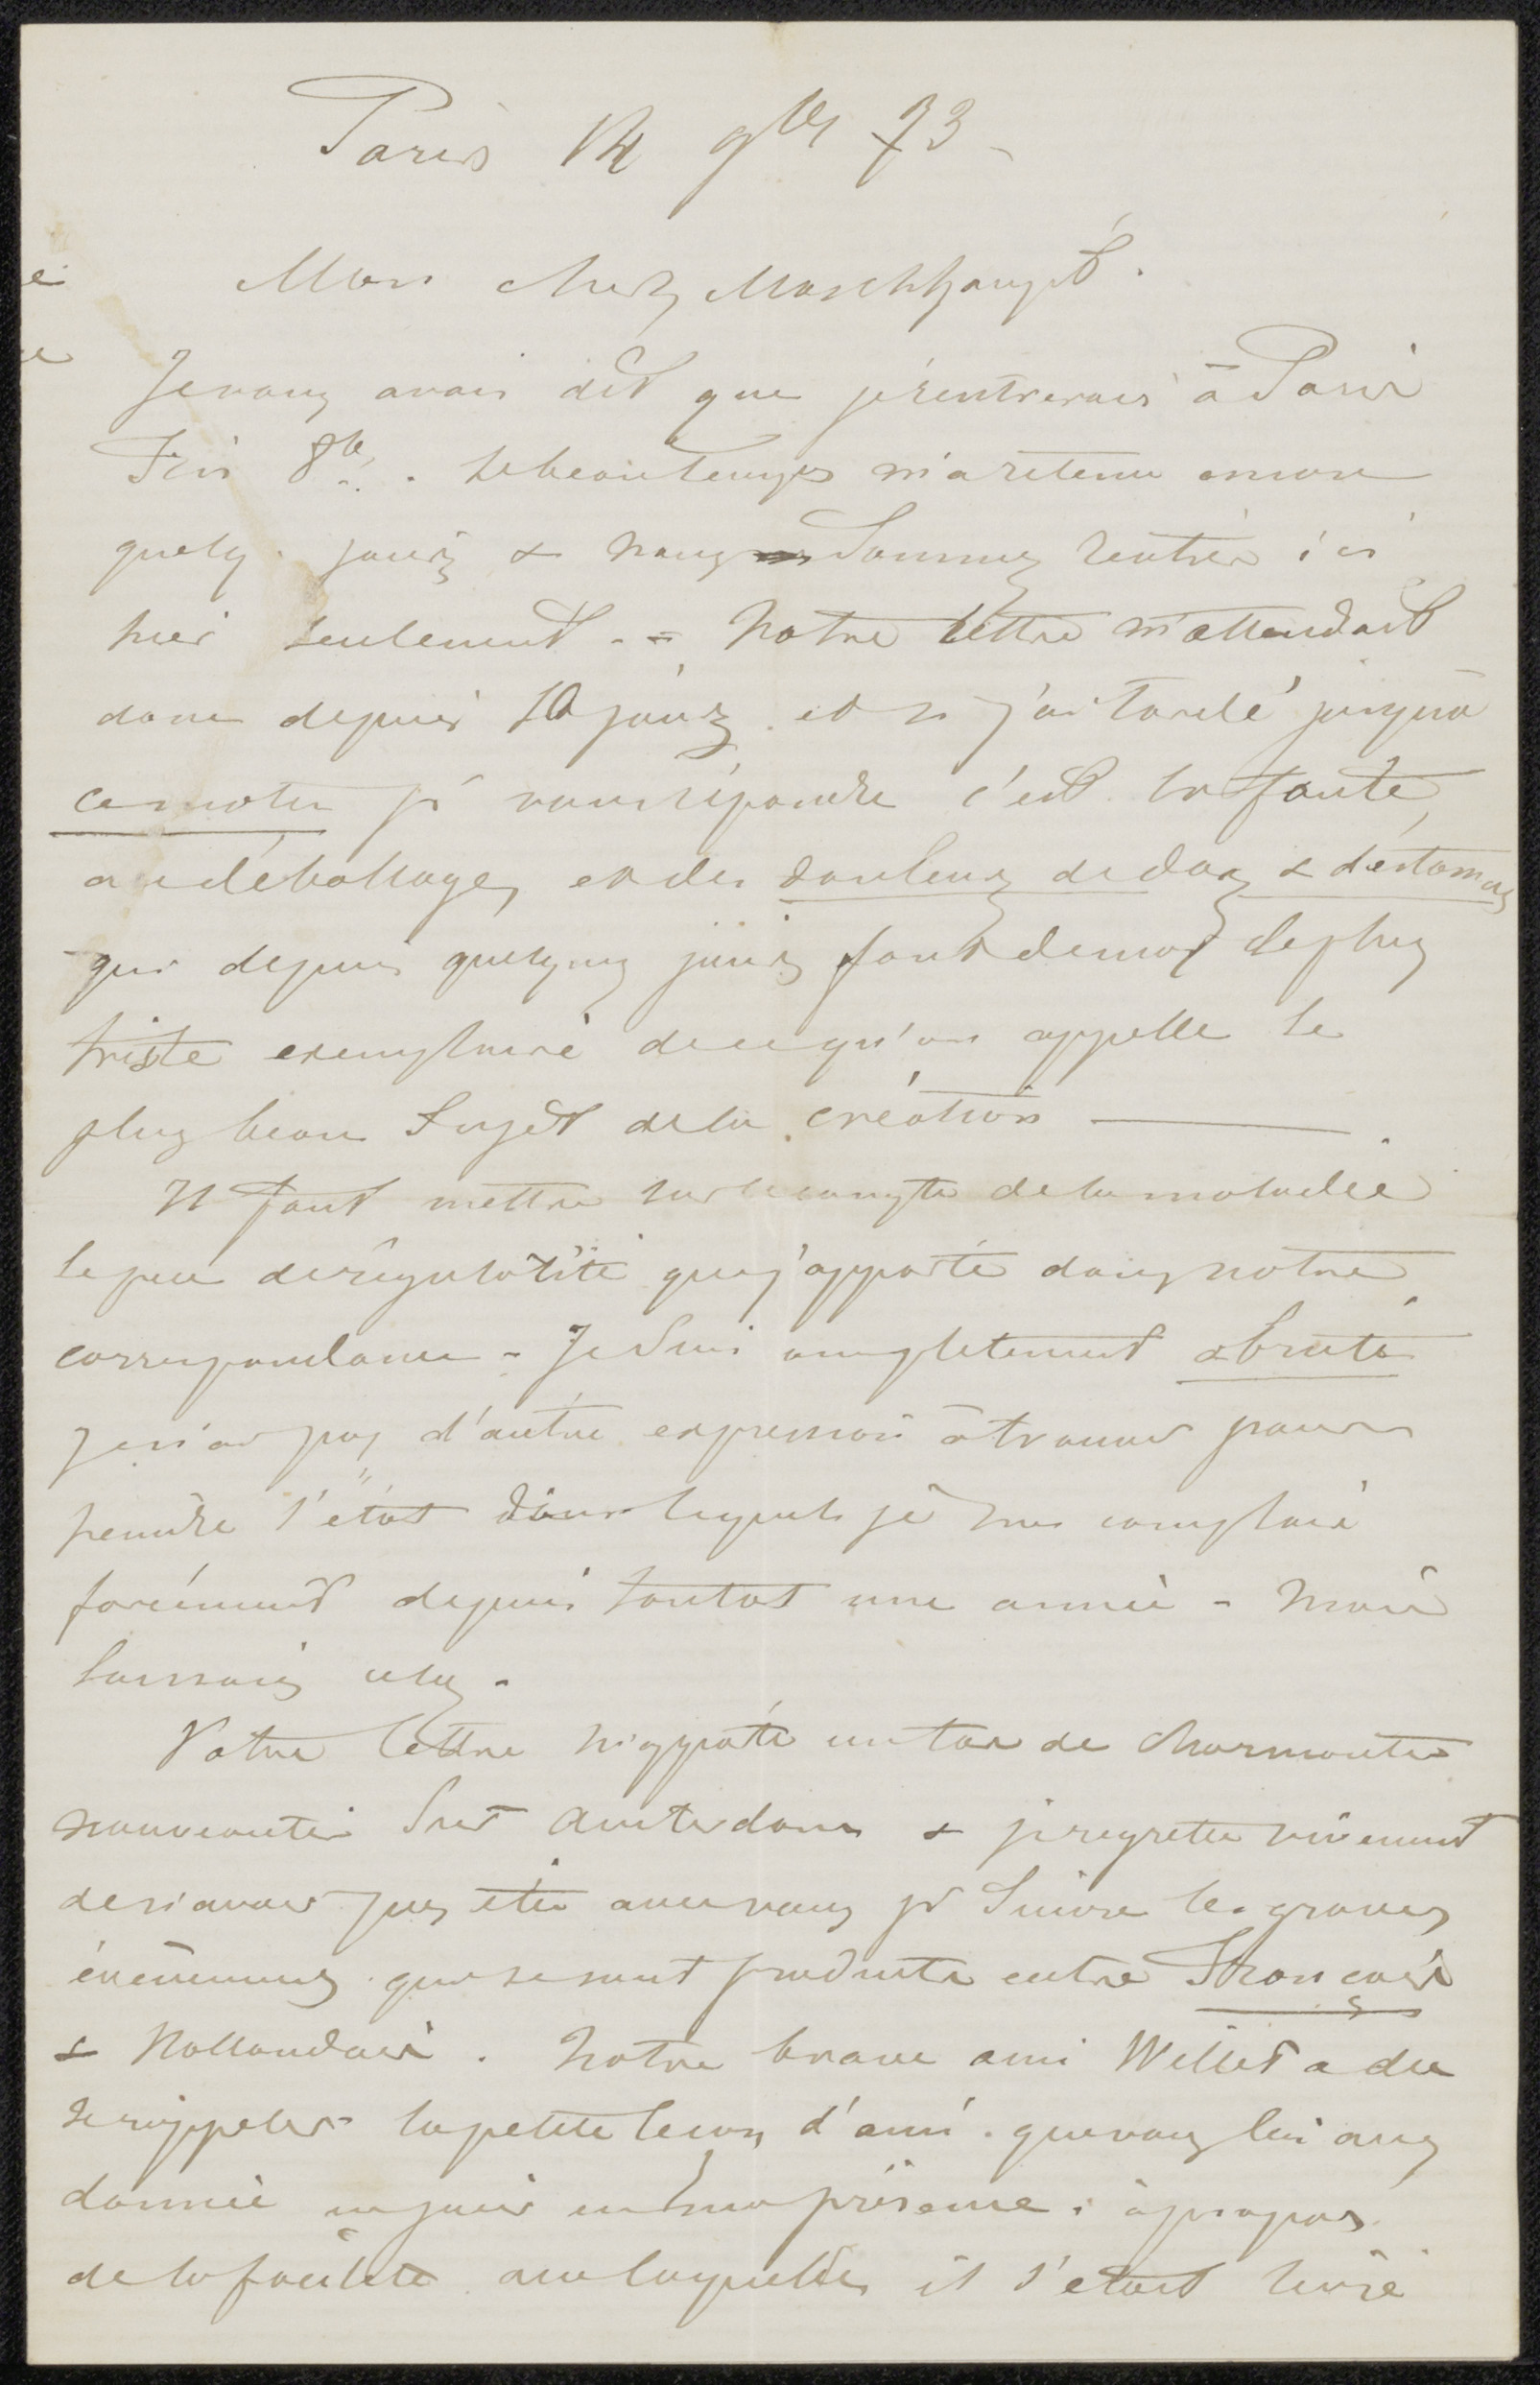 Paris 14 9bre 73 -
Mon cher Maschhaupt.
Je vous avais dit que je rentrerais à Paris
Fin 8bre. Le beau temps m'a retenu encore
quelq. jours & nous sommes rentrés ici
hier seulement. - Notre lettre m'attendait
donc depuis 10 jours et si j'ai tardé jusqu'à
ce matin pr vous répondre c'est la faute
au déballage, et des douleurs de dos & d'estomac
qui depuis quelques jours font de moi le plus
triste exemplaire de ce qu'on appelle le
plus beau sujet de la création ——— .
Il faut mettre sur le compte de la maladie
le peu de régularité que j'apporte dans notre
correspondance - Je suis complètement abruti
je n'ai pas d'autre expression à trouver pour
peindre l'état dans lequel je me complais
forcément depuis tantot une année - Mais
laissons cela.
Votre lettre m'apporte un tas de charmantes
nouveautés sur Amsterdam & je regrette vivement
de n'avoir pas été avec vous pr suivre les graves
événements qui se sont produits entre Français
& Hollandais. Notre brave ami Willet a du
se rappeler la petite leçon d'ami que vous lui avez
donnée un jour en ma présence, à propos
de la facilité avec laquelle il s'était livré